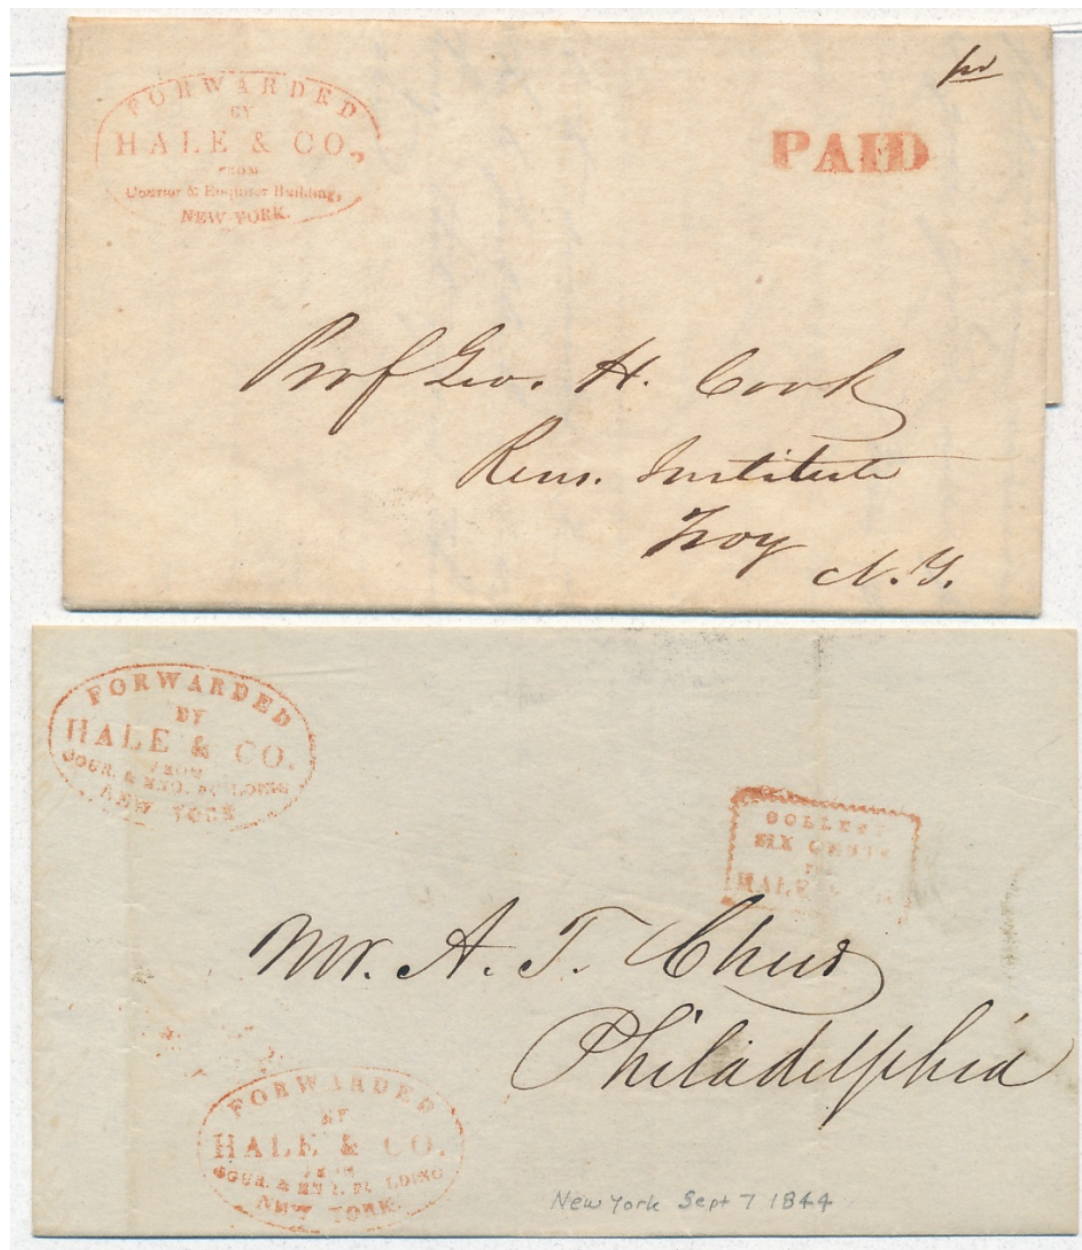 FORWARDED
BY
HALE & CO.,
FROM
Courier & Enquirer Building,
NEW-YORK.
pd
PAID
Prof Geo. H. Cook
Rens. Institute
Troy
N. Y.
FORWARDED
BY
HALE & CO.
FROM
COUR. & ENQ. BUILDING
NEW YORK
COLLECT
SIX CENTS
FOR
HALE
Mr. A. T. Chur
Philadelphia
FORWARDED
BY
HALE & CO.
FROM
COUR. & ENQ. BUILDING
NEW YORK.
New York Sept 7 1844